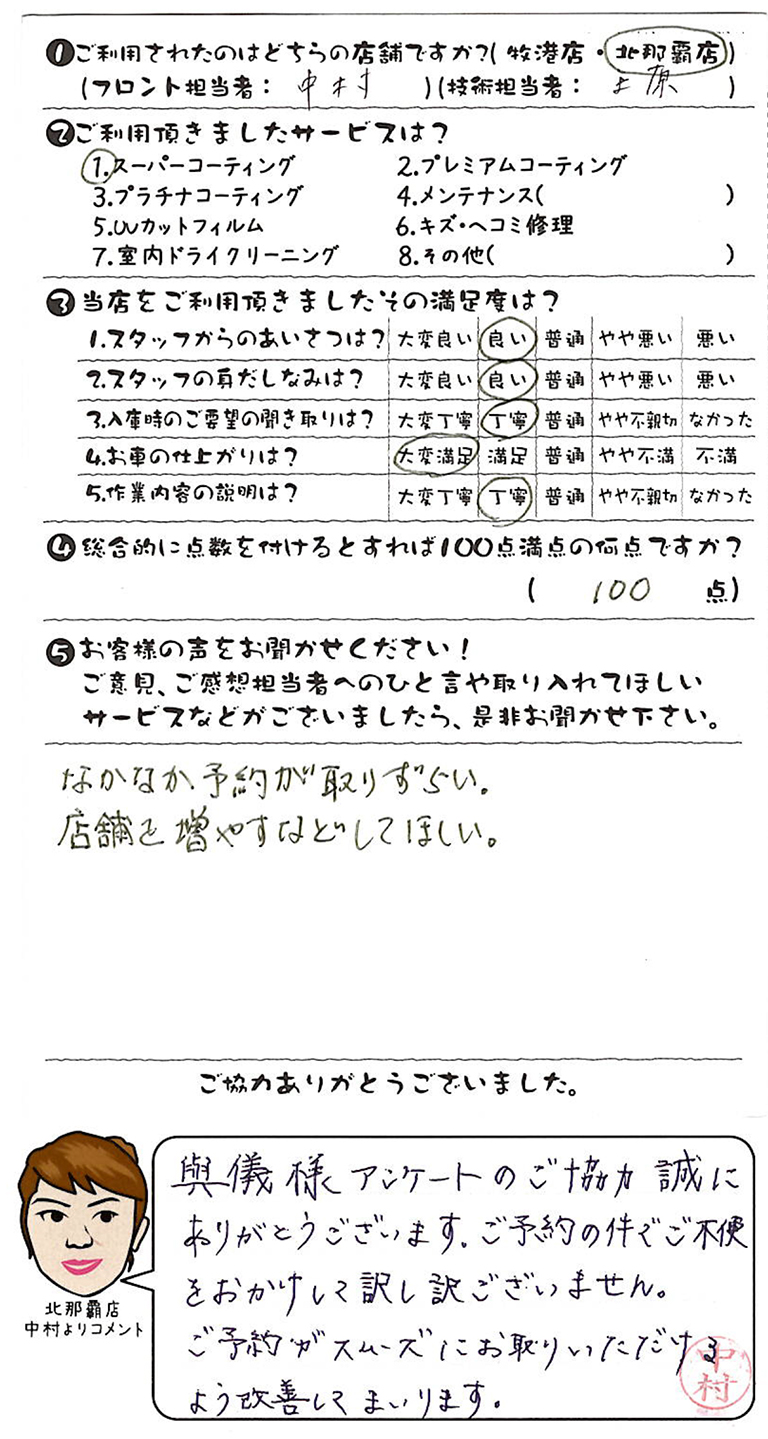 ❶ご利用されたのはどちらの店舗ですか?(牧港店・北那覇店)
(フロント担当者: 中村 )(技術担当者: 上原 )
❷ご利用頂きましたサービスは?
1.スーパーコーティング 2.プレミアムコーティング
3.プラチナコーティング 4.メンテナンス( )
5.UVカットフィルム 6.キズ・ヘコミ修理
7.室内ドライクリーニング 8.その他( )
❸当店をご利用頂きましたその満足度は?
1.スタッフからのあいさつは? 大変良い 良い 普通 やや悪い 悪い
2.スタッフの身だしなみは? 大変良い 良い 普通 やや悪い 悪い
3.入庫時のご要望の聞き取りは? 大変丁寧 丁寧 普通 やや不親切 なかった
4.お車の仕上がりは? 大変満足 満足 普通 やや不満 不満
5.作業内容の説明は? 大変丁寧 丁寧 普通 やや不親切 なかった
❹総合的に点数を付けるとすれば100点満点の何点ですか?
( 100 点)
❺お客様の声をお聞かせください!
ご意見、ご感想担当者へのひと言や取り入れてほしい
サービスなどがございましたら、是非お聞かせ下さい。
なかなか予約が取りずらい。
店舗を増やすなどしてほしい。
ご協力ありがとうございました。
與儀様アンケートのご協力 誠に
ありがとうございます。ご予約の件でご不便
をおかけして訳し訳ございません。
ご予約がスムーズにお取りいただける
よう改善してまいります。
中村
北那覇店
中村よりコメント